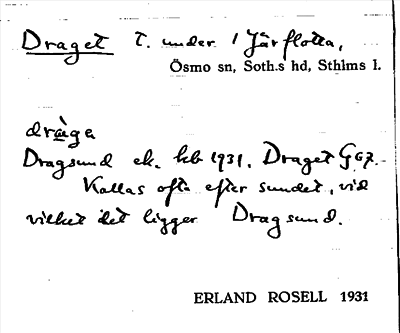 Draget t. under 1 Järflotta,
Ösmo sn, Soth.s hd, Sthlms l.
dràge
Dragsund ek. kb 1931. Draget GGZ.
Kallas ofta efter sundet, vid
vilket det ligger Dragsund.
ERLAND ROSELL 1931